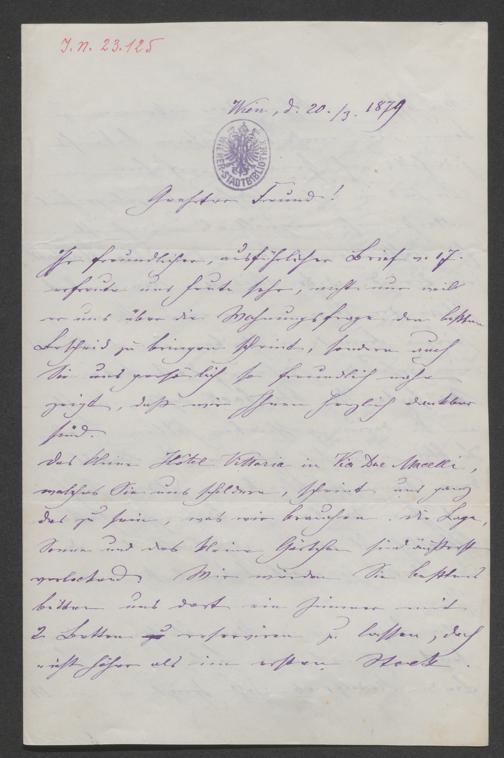 J.N. 23.125
Wien, d. 20./3. 1879
WIENER STADTBIBLIOTHEK
Geehrter Freund!
Ihr freundlicher, ausführlicher Brief v. 17.
erfreute uns heute sehr, nicht nur weil
er uns über die Wohnungsfrage den besten
Bescheid zu bringen scheint, sondern auch
Sie uns persönlich so freundlich nahe
zeigt, daß wir Ihnen herzlich dankbar
sind.
Das kleine Hôtel Vittoria in Via Due Macelli,
welches Sie uns schildern, scheint uns ganz
das zu sein, was wir brauchen. Die Lage,
Sonne und das kleine Gärtchen sind äußerst
verlockend. Wir würden Sie bestens
bitten uns dort ein Zimmer mit
2 Betten reserviren zu lassen, doch
nicht höher als im ersten Stock.